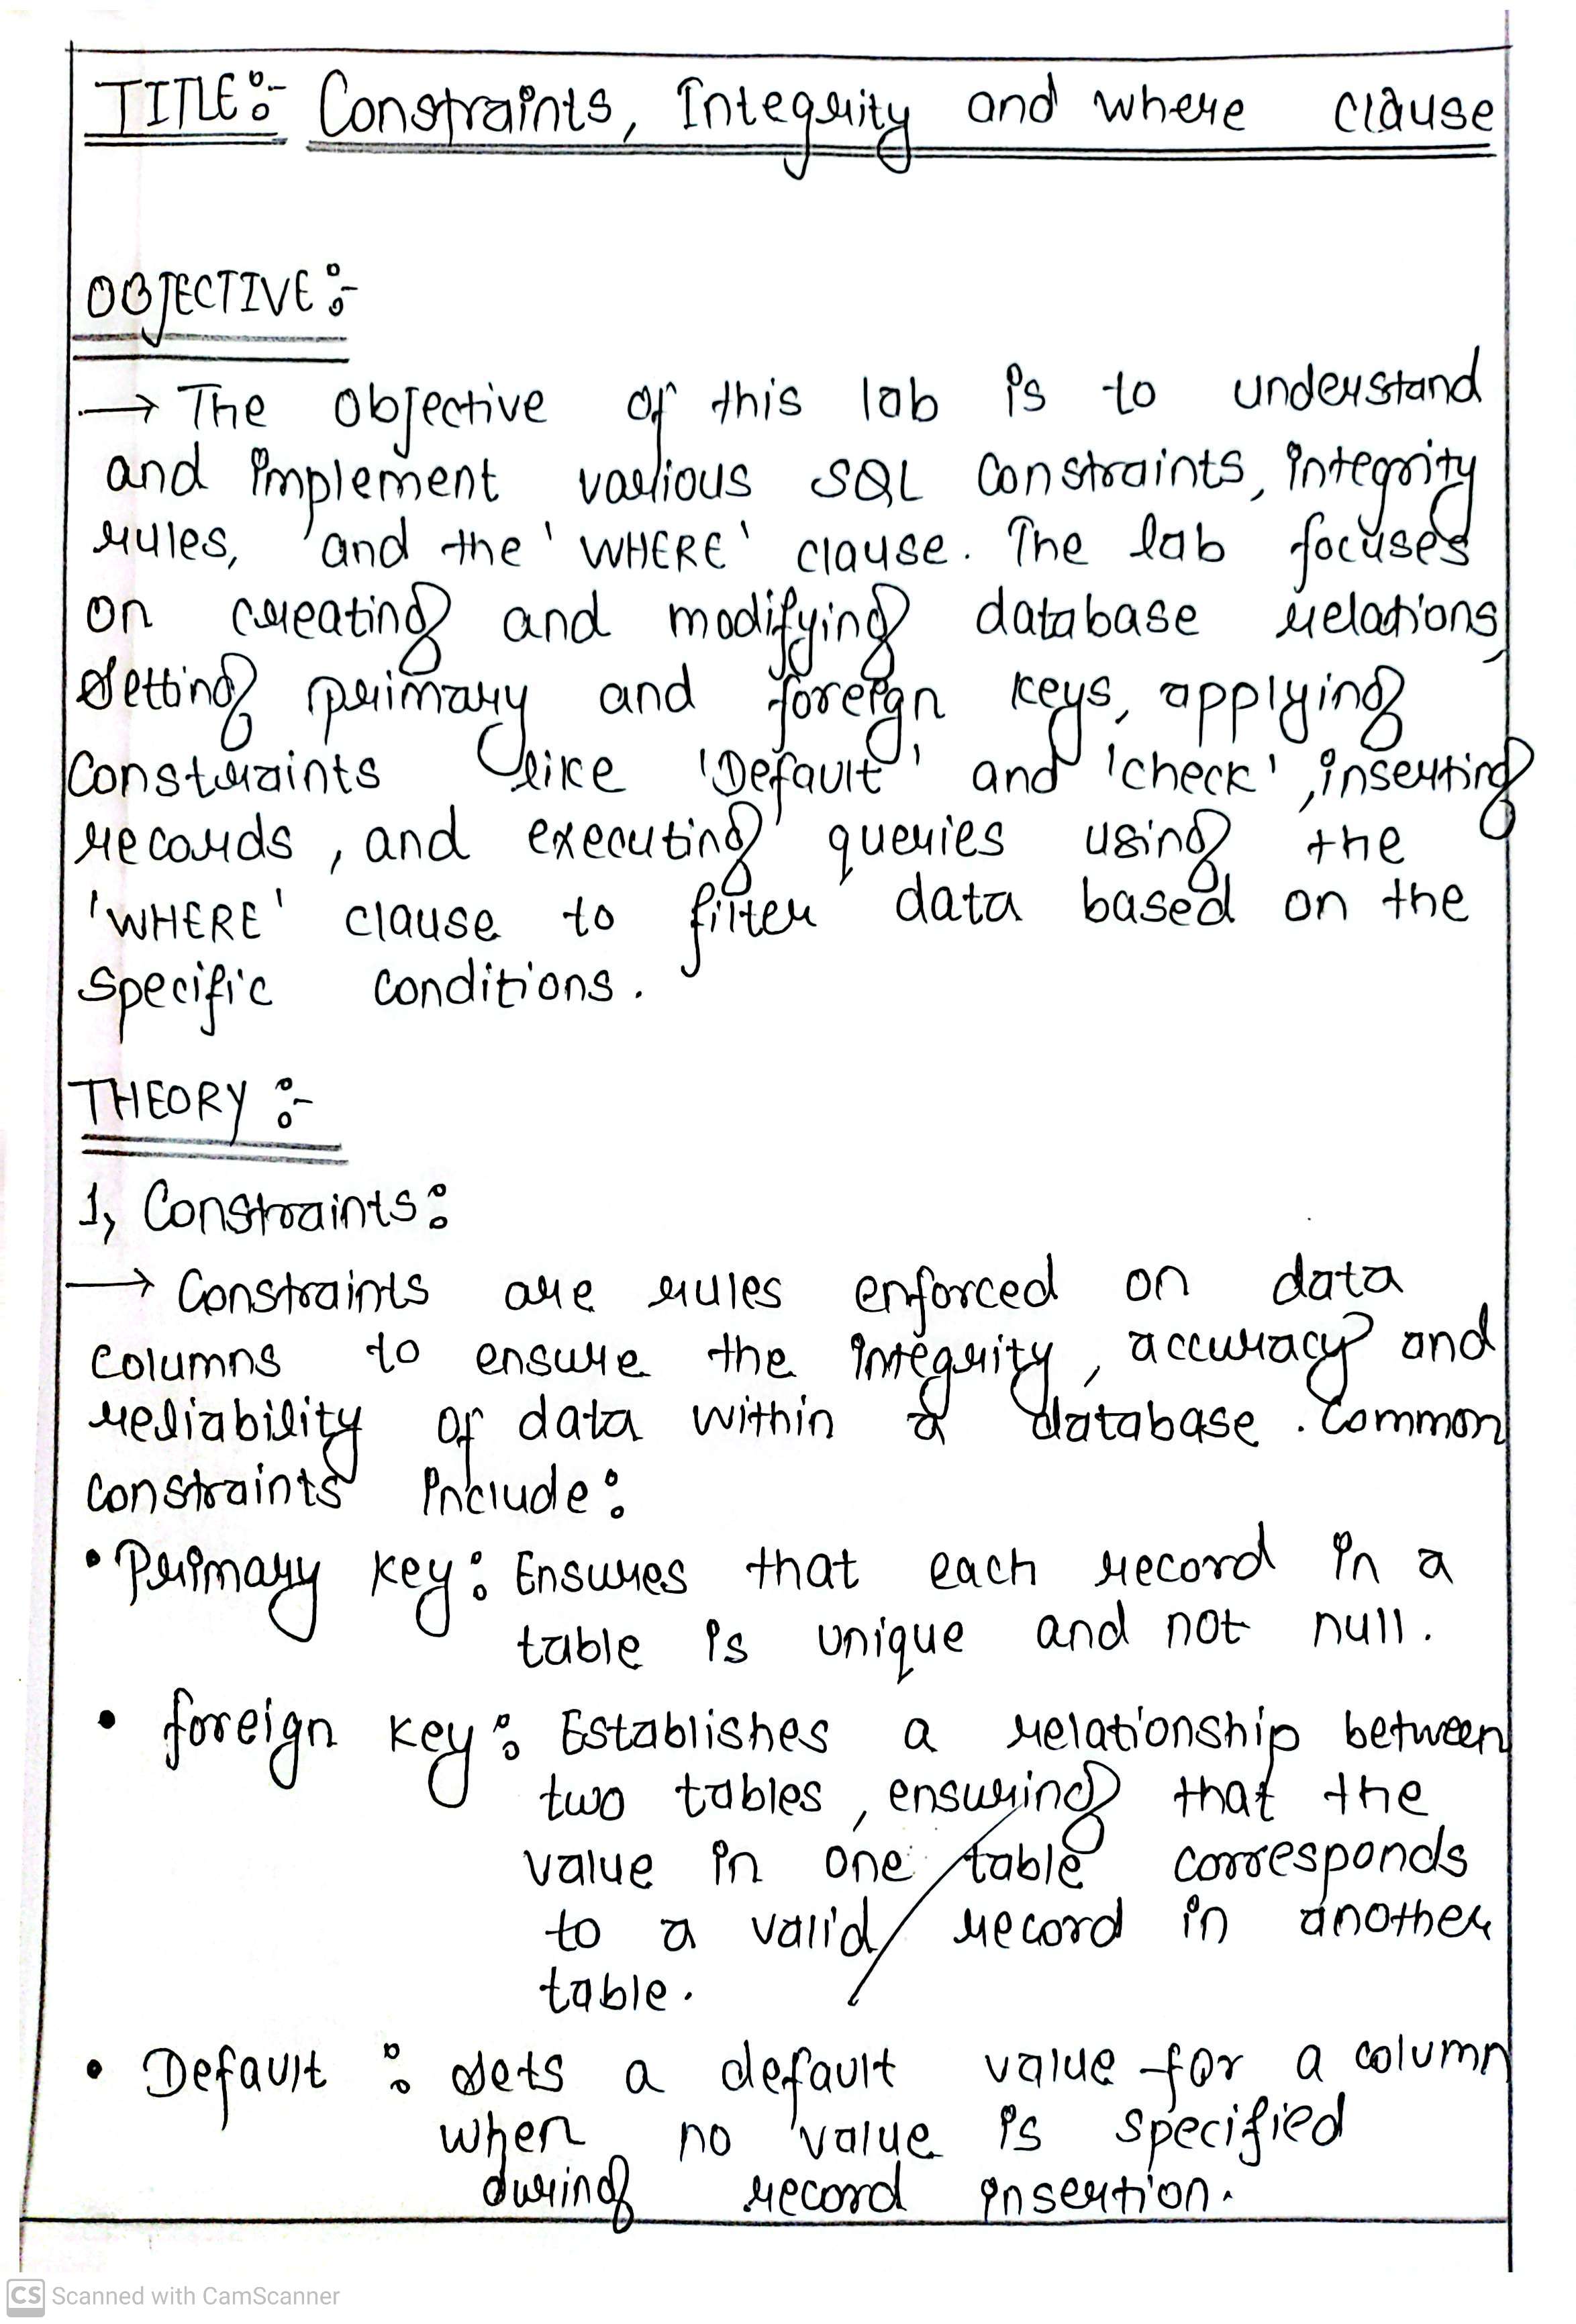 TITLE:- Constraints, Integrity and where clause
OBJECTIVE:-
→ The objective of this lab is to understand
and implement various SQL constraints, integrity
rules, and the 'WHERE' clause. The lab focuses
on creating and modifying database relations,
setting primary and foreign keys, applying
constraints like 'Default' and 'check', inserting
records, and executing queries using the
'WHERE' clause to filter data based on the
specific conditions.
THEORY:-
1, Constraints:
→ Constraints are rules enforced on data
columns to ensure the integrity, accuracy and
reliability of data within a database. Common
constraints include:
• Primary key: Ensures that each record in a
table is unique and not null.
• foreign key: Establishes a relationship between
two tables, ensuring that the
value in one table corresponds
to a valid record in another
table.
• Default: sets a default value for a column
when no value is specified
during record insertion.
CS Scanned with CamScanner